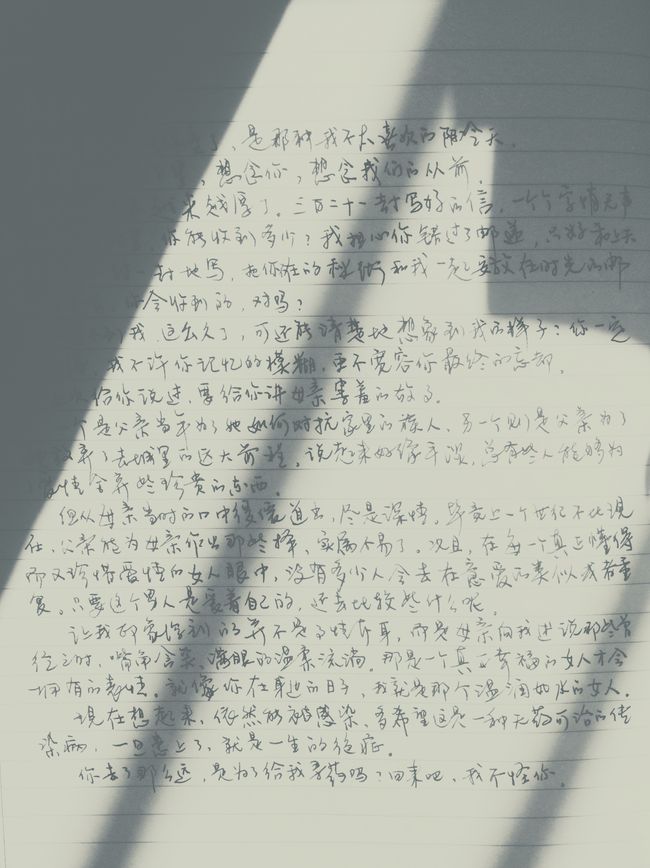 了，是那种我不太喜欢的阴冷天。
想念你，想念我们的从前。
来越厚了。三百二十一封写好的信，一个个字情无声
你能收到多少？我担心你错过了邮递，只好和上天
封地写，把你在的和我一起交放在时光的邮
会收到的，对吗？
我这么久了，可还能清楚地想象到我的样子：你一定
我不许你记忆的模糊，更不宽容你最终的忘却。
给你说过，要给你讲母亲害羞的故事。
个是父亲当年为了她如何对抗家里的族人，另一个则是父亲为了
放弃了去城里的远大前程。说起来好像平淡，总有些人能够为
爱情舍弃些珍贵的东西。
但从母亲当时的口中缓缓道出，尽是深情。毕竟上一个世纪不比现
在，父亲能为母亲作出那些择，实属不易了。况且，在每一个真正懂得
而又珍惜爱情的女人眼中，没有多少人会去在意爱的类似或者重
复。只要这个男人是爱着自己的，还去比较些什么呢。
让我印象深刻的并不是事情本身，而是母亲向我述说那些曾
经之时，嘴角含笑，满眼的温柔流淌。那是一个真正幸福的女人才会
拥有的表情。就像你在身边的日子，我就是那个温润如水的女人。
现在想起来，依然能被感染，多希望这是一种无药可治的传
染病，一旦患上了，就是一生的绝症。
你去了那么远，是为了给我寻药吗？回来吧，我不怪你。